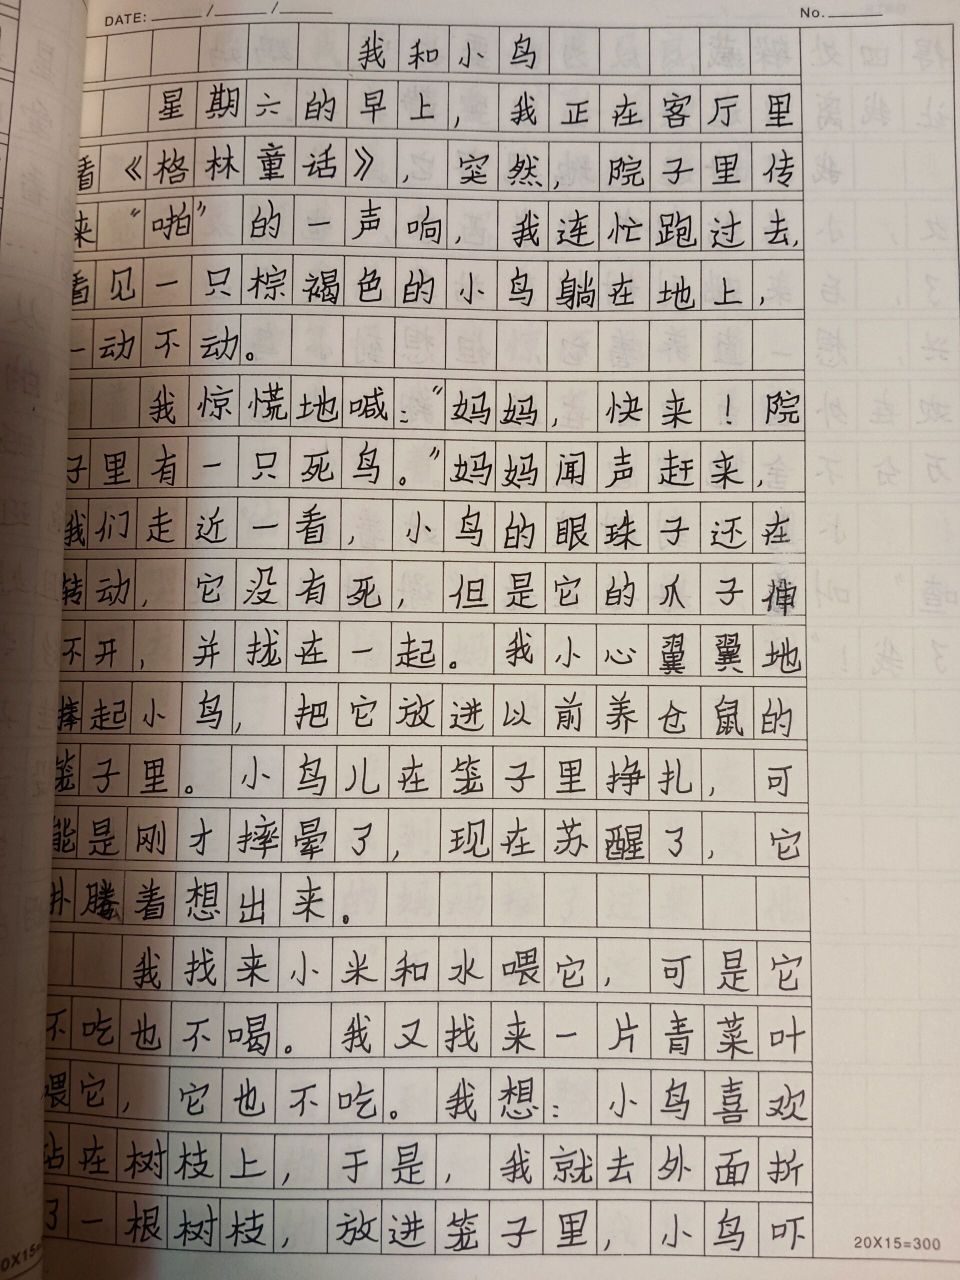 DATE: ____/____/____ No.____
我和小鸟
星期六的早上，我正在客厅里
看《格林童话》，突然，院子里传
来“啪”的一声响，我连忙跑过去，
看见一只棕褐色的小鸟躺在地上，
一动不动。
我惊慌地喊：“妈妈，快来！院
子里有一只死鸟。”妈妈闻声赶来，
我们走近一看，小鸟的眼珠子还在
转动，它没有死，但是它的爪子伸
不开，并拢在一起。我小心翼翼地
捧起小鸟，把它放进以前养仓鼠的
笼子里。小鸟儿在笼子里挣扎，可
能是刚才摔晕了，现在苏醒了，它
扑腾着想出来。
我找来小米和水喂它，可是它
不吃也不喝。我又找来一片青菜叶
喂它，它也不吃。我想：小鸟喜欢
站在树枝上，于是，我就去外面折
了一根树枝，放进笼子里，小鸟吓
20X15=300